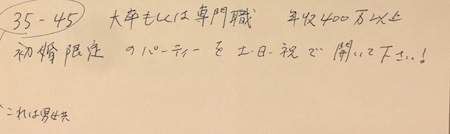 35-45 大卒もしくは専門職 年収400万以上
初婚限定 のパーティーを土・日・祝で開いて下さい!
これは男女共